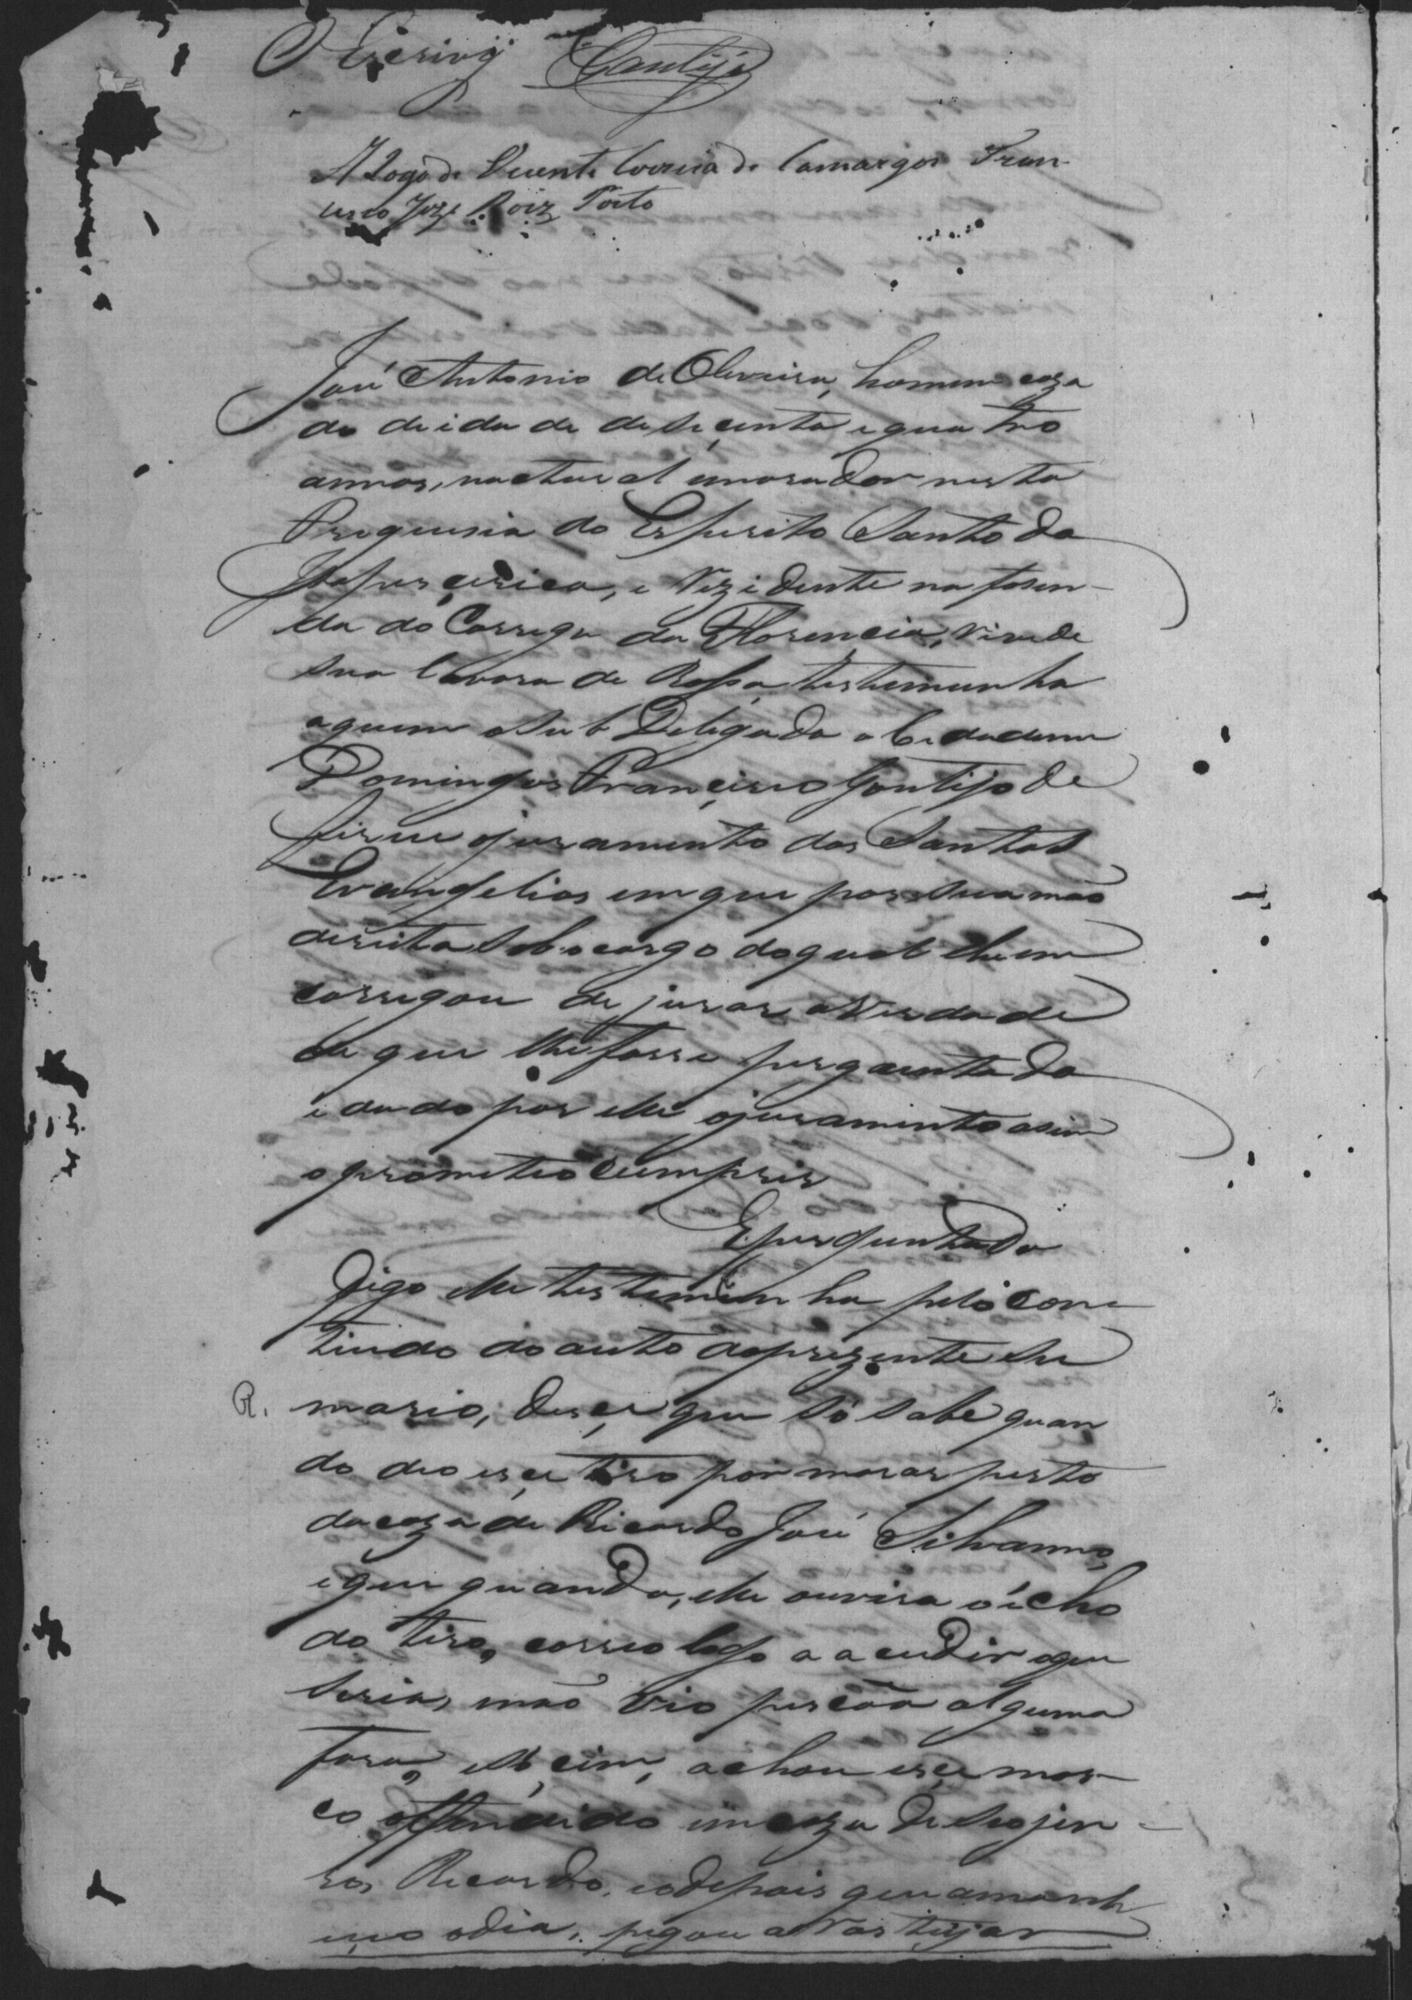 Gontijo
A Rogo de Vicente Correia de Camargos Fran
cisco Joze Roiz Porto
José Antonio de Oliveira, homem caza
do de idade de secenta e quatro
annos, natural morador nesta
Freguesia do Esperito Santo da
Itapecerica, e Rezidente na fasen-
da do Corrego da Florencia, vive de
sua lavora de Rossa, testemunha
a quem o Sub Delegado o Cidadam
Domingos Francisco Gontijo de
firiu o juramento dos Santos
Evangelios em que pos sua mão
direita sob o cargo do qual lhe em
carregou de jurar a Verdade
de que lhe fosse perguntado
e dado por elle o juramento asim
o prometeo cumprir
E perguntado
Digo elle testemunha pelo con-
tiudo do auto do prezente Su
R. mario, disce que só sabe quan
do deo esce tiro por morar perto
da caza de Ricardo José Silvanno,
e que quando, elle ouvira o écho
do tiro, correo logo a acudir o que
seria, não vio pesçôa alguma
fora, e só cim, achou esce mor-
to offendido em caza de seo jen-
ro, Ricardo, e depois que amanh
eceo o dia, pegou a Rastejar